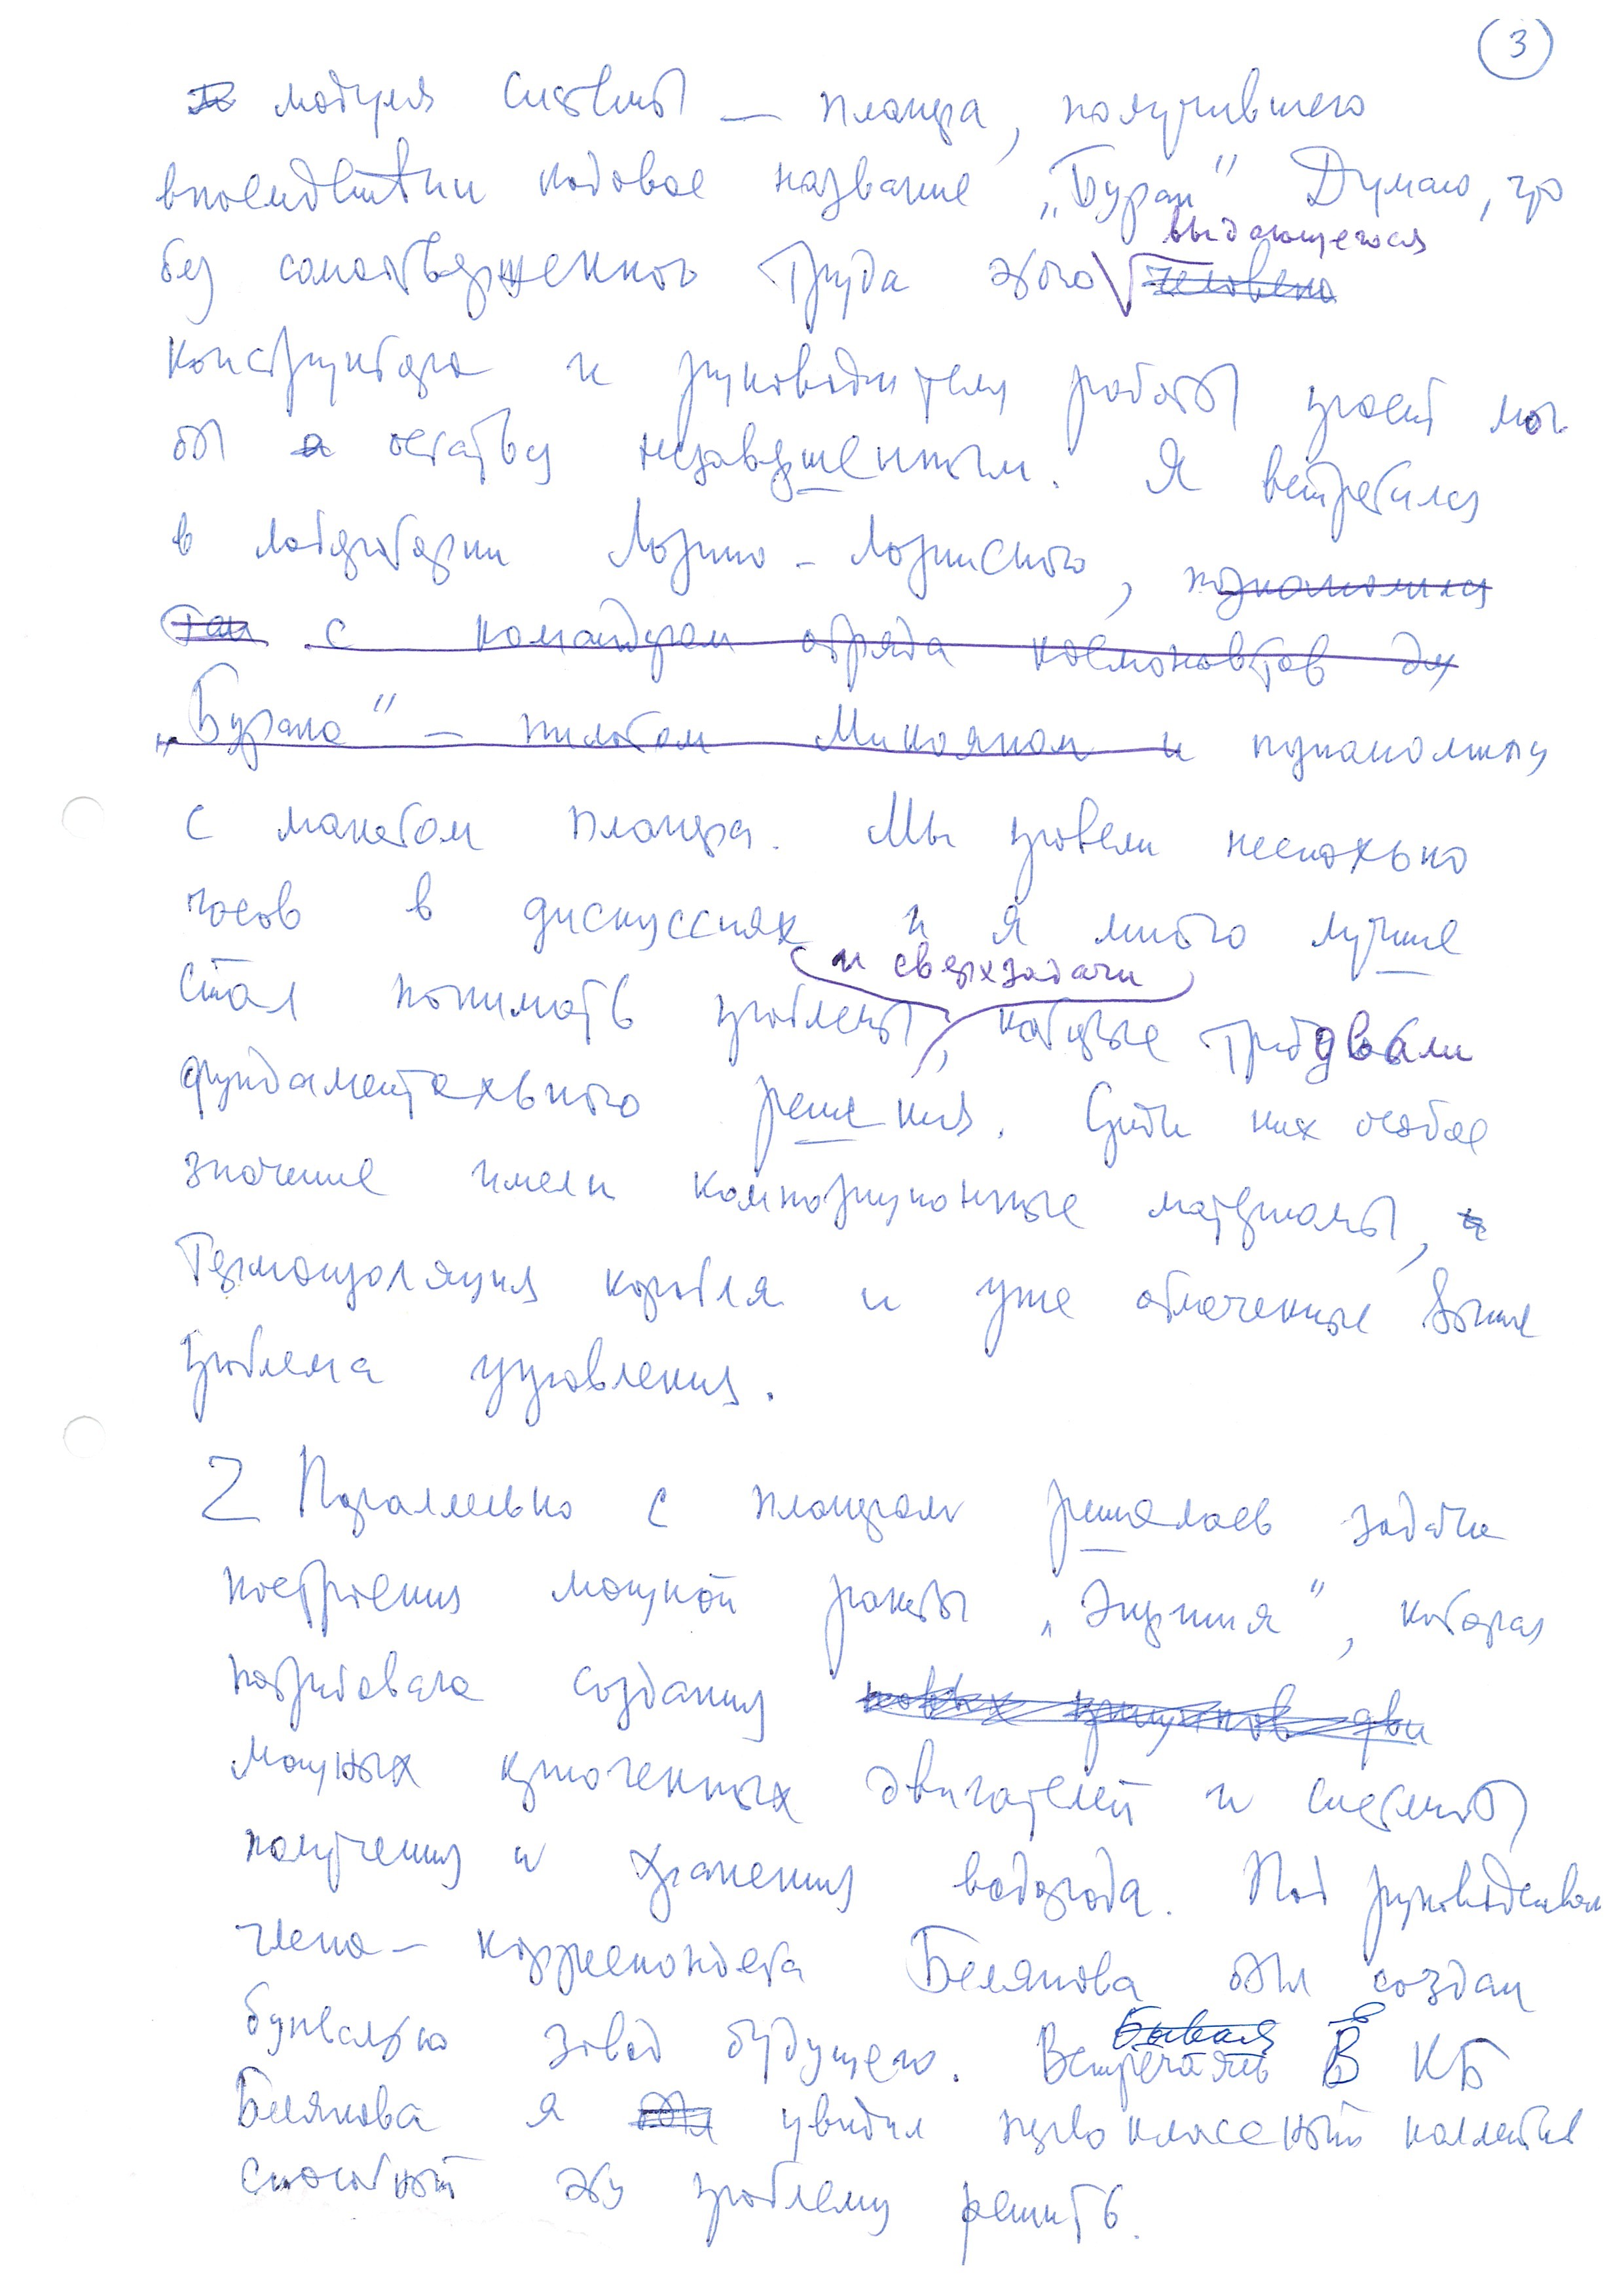 3
модуля системы — планера, получившего
впоследствии кодовое название „Буран" Думаю, что
выдающегося
без самоотверженного труда этого человека
конструктора и руководителя работ проект мог
бы остаться незавершенным. Я встретился
в лаборатории Лозино-Лозинского, познакомился
там с командиром отряда космонавтов для
„Бурана" — пилотом Микояном и познакомился
с макетом планера. Мы провели несколько
часов в дискуссиях и я много лучше
и сверхзадачи
стал понимать проблемы, которые требовали
фундаментального решения. Среди них особое
значение имели композиционные материалы, и
Термоизоляция корабля и уже отмеченные выше
проблема управления.
2 Параллельно с планером решалась задача
построения мощной ракеты „Энергия", которая
потребовала создания новых принципов дви
мощных криогенных двигателей и системы
получения и хранения водорода. Под руководством
члена-корреспондента Белякова был создан
буквально завод будущего.
Бывая в
Встречаясь В КБ
Белякова я был увидел первоклассный коллектив
способный эту проблему решить.